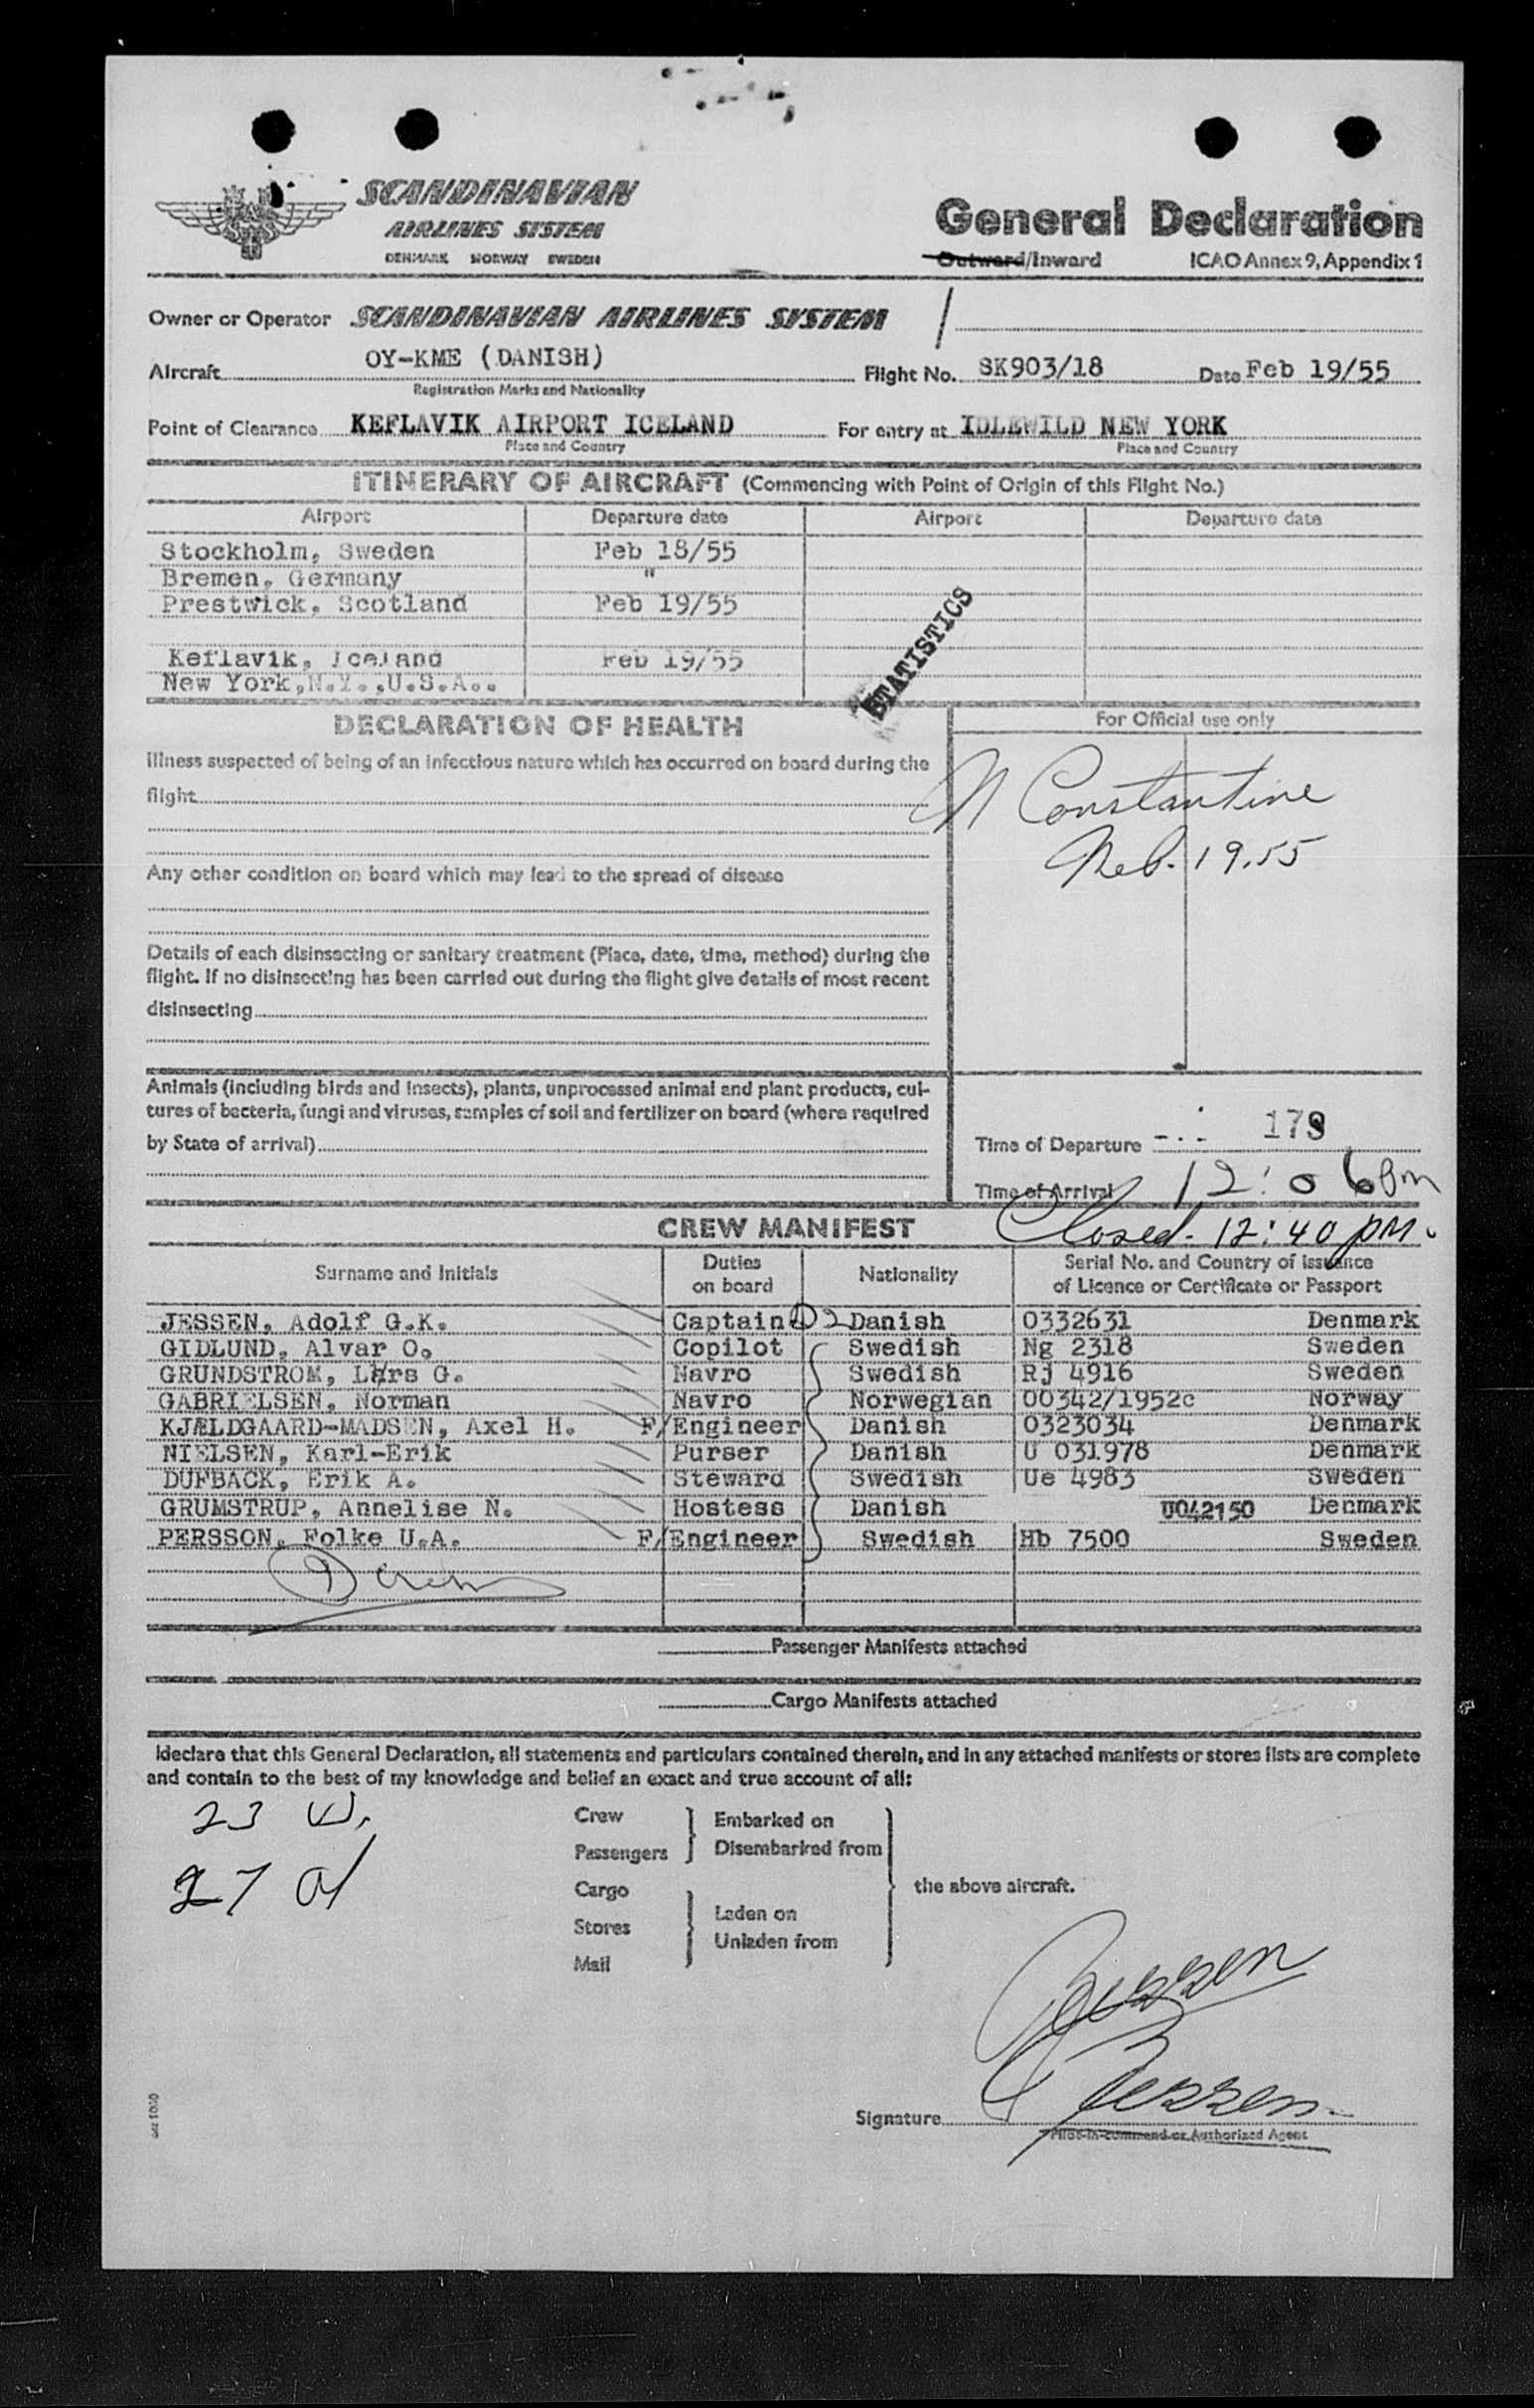 SCANDINAVIAN
AIRLINES SYSTEM
DENMARK NORWAY SWEDEN
General Declaration
Outward/Inward ICAO Annex 9, Appendix 1
Owner or Operator SCANDINAVIAN AIRLINES SYSTEM
Aircraft OY-KME (DANISH) Flight No. SK903/18 Date Feb 19/55
Registration Marks and Nationality
Point of Clearance KEFLAVIK AIRPORT ICELAND For entry at IDLEWILD NEW YORK
Place and Country Place and Country
ITINERARY OF AIRCRAFT (Commencing with Point of Origin of this Flight No.)
Airport Departure date Airport Departure date
Stockholm, Sweden Feb 18/55
Bremen, Germany "
Prestwick, Scotland Feb 19/55
STATISTICS
Keflavik, Iceland Feb 19/55
New York,N.Y.,U.S.A..
DECLARATION OF HEALTH
For Official use only
Illness suspected of being of an infectious nature which has occurred on board during the
flight
N Constantine
Feb. 19.55
Any other condition on board which may lead to the spread of disease
Details of each disinsecting or sanitary treatment (Place, date, time, method) during the
flight. If no disinsecting has been carried out during the flight give details of most recent
disinsecting
Animals (including birds and insects), plants, unprocessed animal and plant products, cul-
tures of bacteria, fungi and viruses, samples of soil and fertilizer on board (where required
by State of arrival)
Time of Departure
Time of Arrival 12:06 pm
Closed. 12:40 pm.
CREW MANIFEST
Surname and Initials Duties on board Nationality Serial No. and Country of issuance of Licence or Certificate or Passport
JESSEN, Adolf G.K. Captain D2 Danish 0332631 Denmark
GIDLUND, Alvar O. Copilot Swedish Ng 2318 Sweden
GRUNDSTROM, Lars G. Navro Swedish Rj 4916 Sweden
GABRIELSEN, Norman Navro Norwegian 00342/1952c Norway
KJÆLDGAARD-MADSEN, Axel H. F/Engineer Danish 0323034 Denmark
NIELSEN, Karl-Erik Purser Danish U 031978 Denmark
DUFBACK, Erik A. Steward Swedish Ue 4983 Sweden
GRUMSTRUP, Annelise N. Hostess Danish U042150 Denmark
PERSSON, Folke U.A. F/Engineer Swedish Hb 7500 Sweden
Passenger Manifests attached
Cargo Manifests attached
I declare that this General Declaration, all statements and particulars contained therein, and in any attached manifests or stores lists are complete
and contain to the best of my knowledge and belief an exact and true account of all:
23
27
Crew
Passengers
Embarked on
Disembarked from
Cargo
Stores
Mail
Laden on
Unladen from
the above aircraft.
Jessen
Jessen
Signature
Pilot-in-command or Authorized Agent